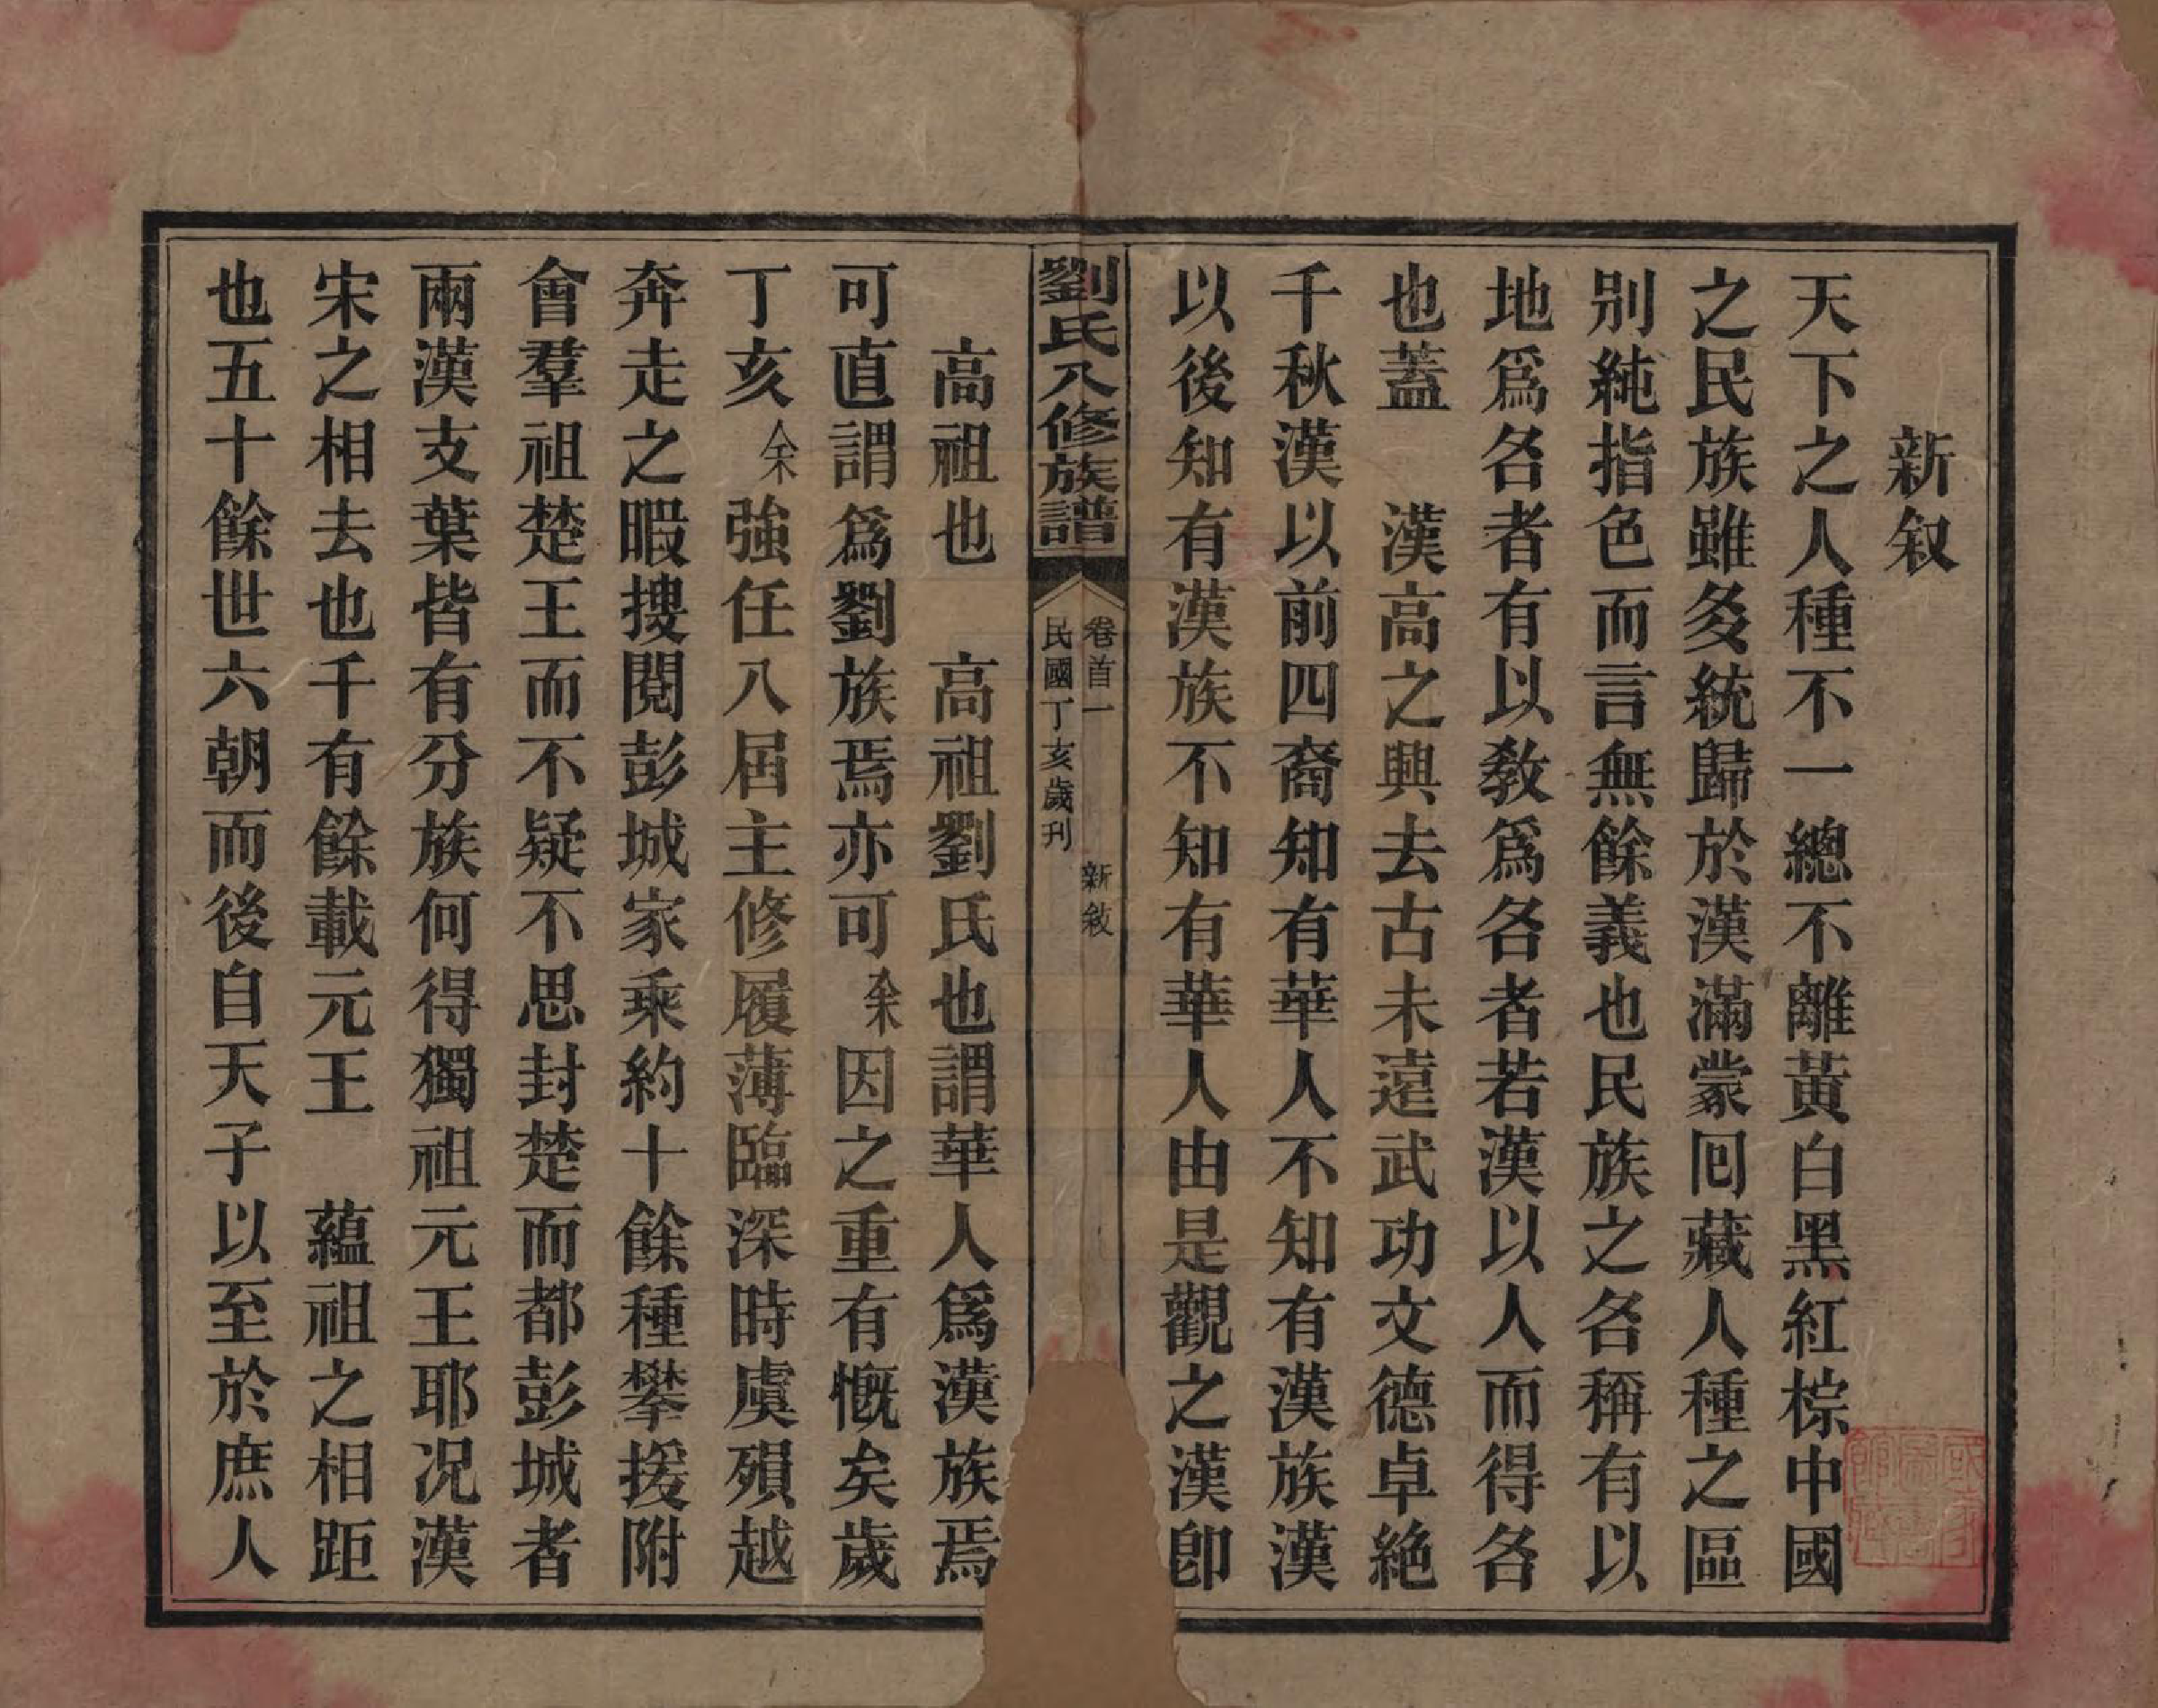 新叙
天下之人種不一總不離黃白黑紅棕中國
之民族雖多統歸於漢滿蒙囘藏人種之區
别純指色而言無餘義也民族之各稱有以
地爲各者有以敎爲各者若漢以人而得各
也蓋　漢高之興去古未遠武功文德卓絶
千秋漢以前四裔知有華人不知有漢族漢
以後知有漢族不知有華人由是觀之漢卽
劉氏八修族譜
卷首一　新敘
民國丁亥歲刊
高祖也　高祖劉氏也謂華人爲漢族焉
可直謂爲劉族焉亦可余因之重有慨矣歲
丁亥余強任八屆主修履薄臨深時虞殞越
奔走之暇搜閱彭城家乘約十餘種攀援附
會羣祖楚王而不疑不思封楚而都彭城者
兩漢支葉皆有分族何得獨祖元王耶况漢
宋之相去也千有餘載元王　蘊祖之相距
也五十餘世六朝而後自天子以至於庶人